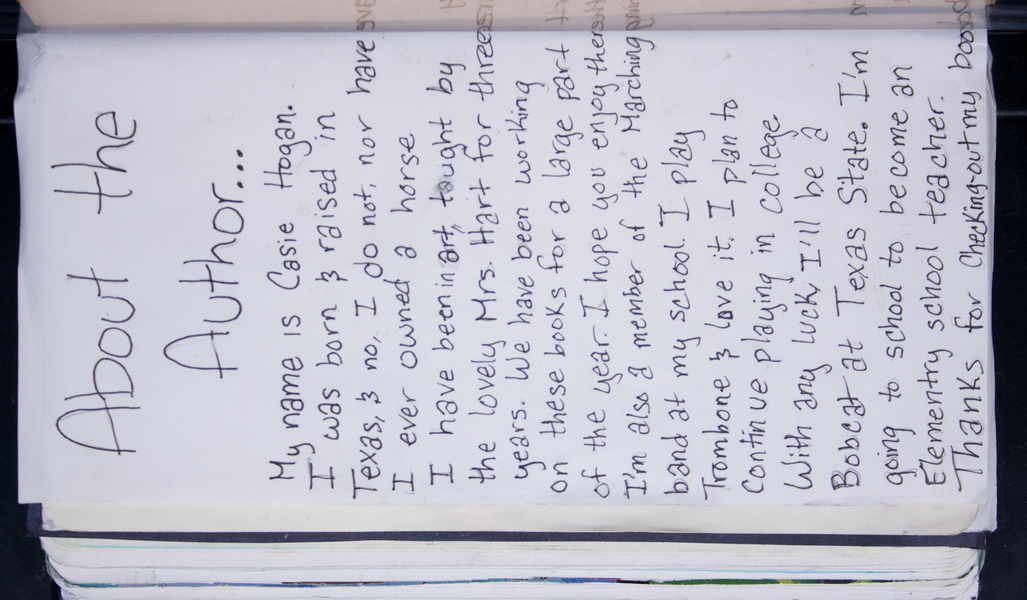 About the
Author...
My name is Casie Hogan.
I was born & raised in
Texas, & no, I do not, nor have
I ever owned a horse
I have been in art, taught by
the lovely Mrs. Hart for three
years. We have been working
on these books for a large part
of the year. I hope you enjoy them
I'm also a member of the Marching
band at my school. I play
Trombone & love it. I plan to
Continue playing in college.
With any luck, I'll be a
Bobcat at Texas State. I'm
going to school to become an
Elementry school teacher.
Thanks for checking out my book